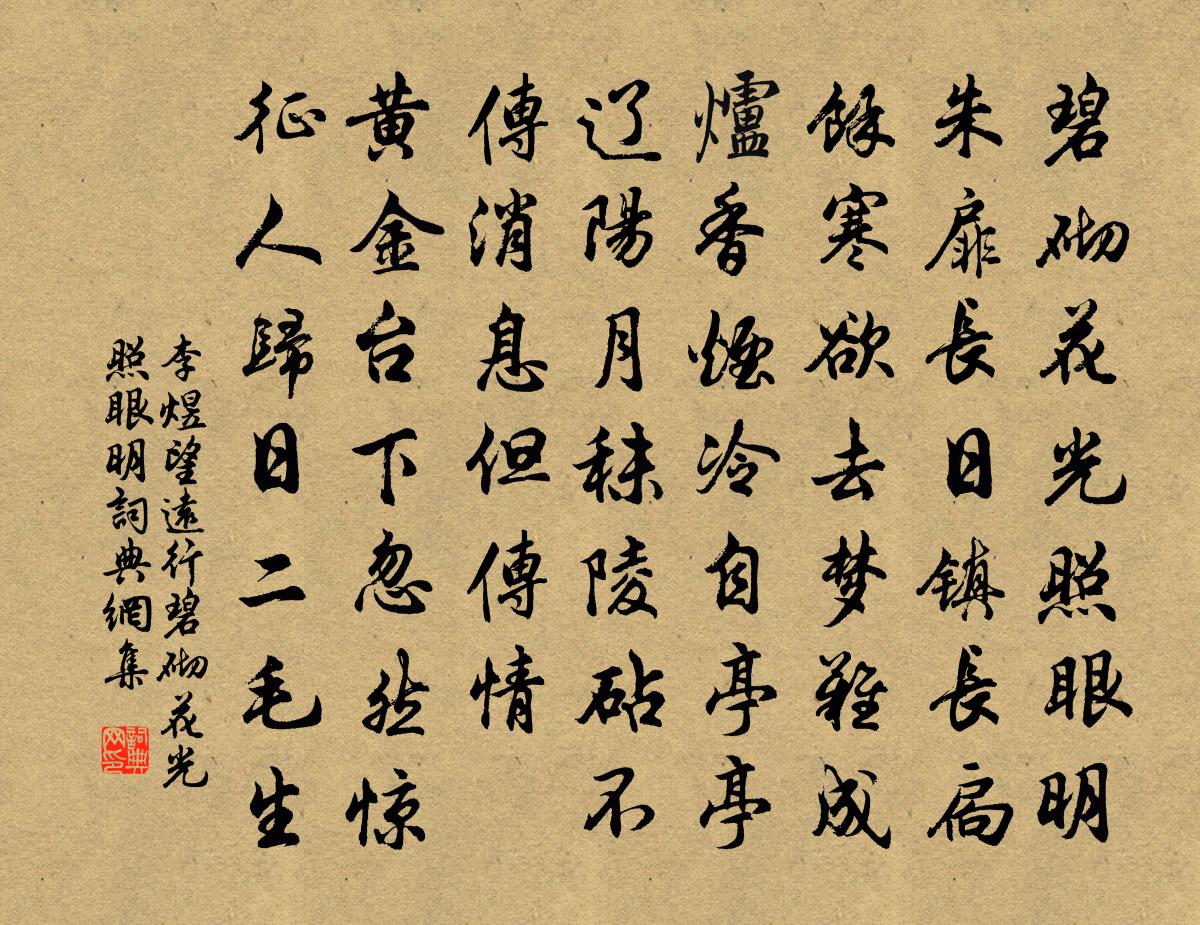 碧砌花光照眼明
朱扉長日鎮長扃
餘寒欲去梦難成
爐香煙冷自亭亭
辽陽月秣陵砧不
傳消息但傳情
黄金台下忽然惊
征人歸日二毛生
李煜望遠行碧砌花光
照眼明詞典網集
詞典网印